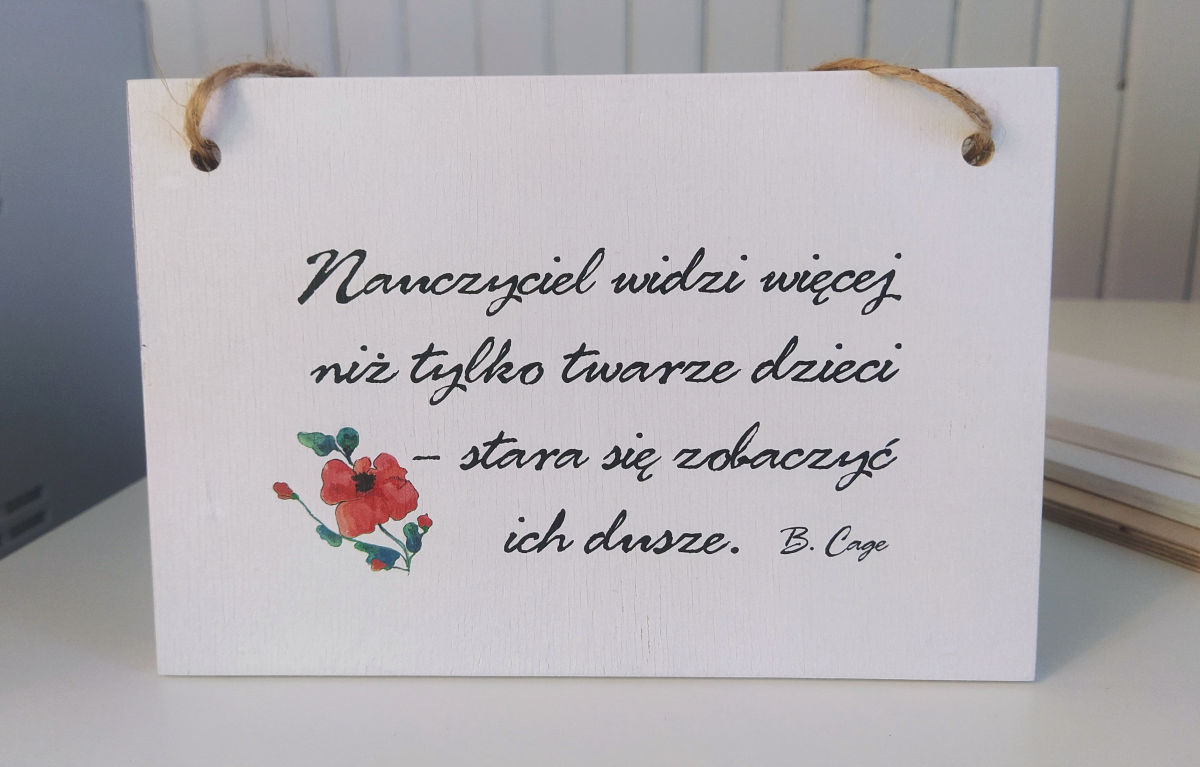 Nauczyciel widzi więcej
niż tylko twarze dzieci
– stara się zobaczyć
ich dusze. B. Cage